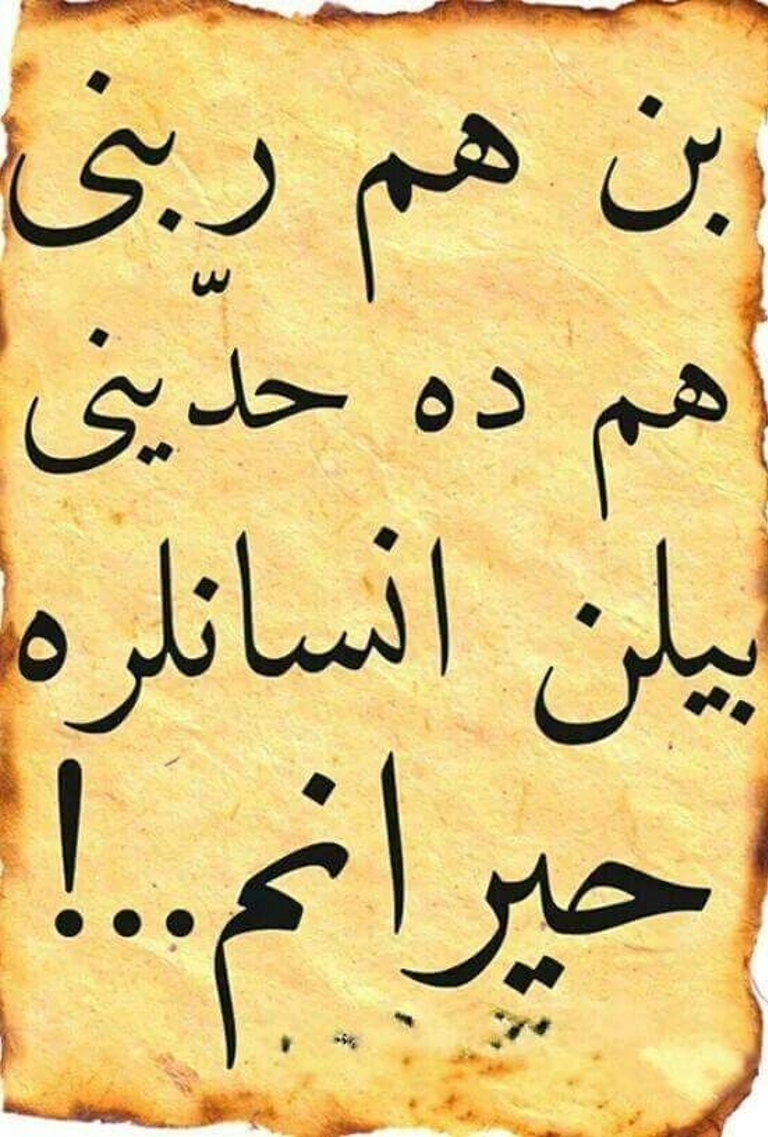 بن هم ربنی
هم ده حدّینی
بیلن انسانلره
حیرانم...!